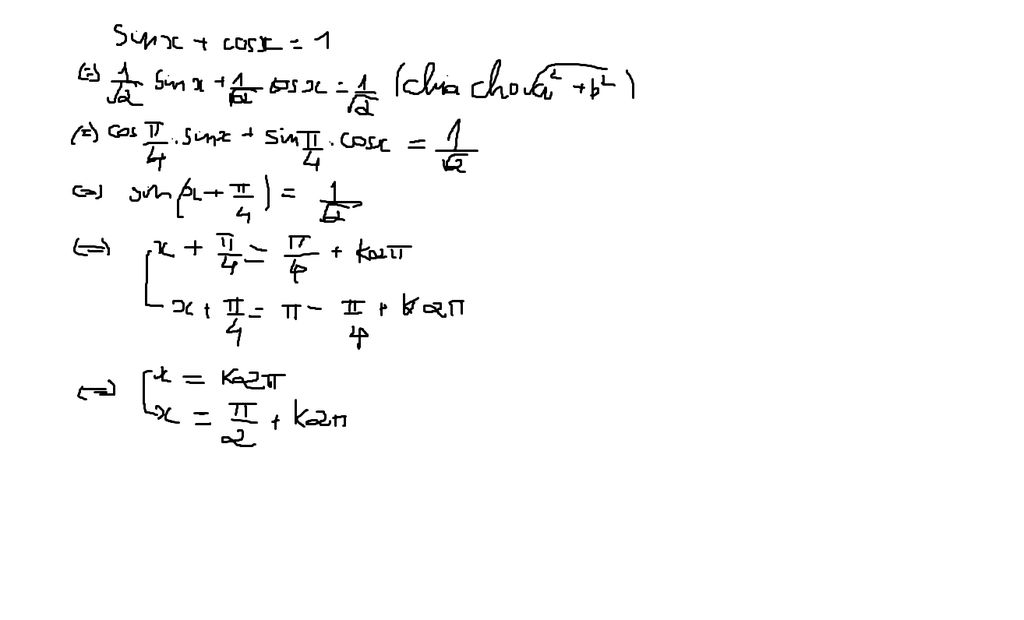 sinx + cosx = 1
(=) 1/√2 sin x + 1/√2 cos x = 1/√2 (chia cho √a² + b²)
(=) cos π/4 . sinx + sin π/4 . cosx = 1/√2
(=) sin(x + π/4) = 1/√2
(=) [ x + π/4 = π/4 + k2π
x + π/4 = π - π/4 + k2π
(=) [ x = k2π
x = π/2 + k2π